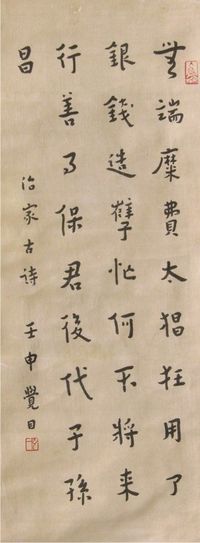 無端糜費太猖狂用了
銀錢造孽忙何不將来
行善事保君後代子孫
昌
治家古詩 壬申覺日